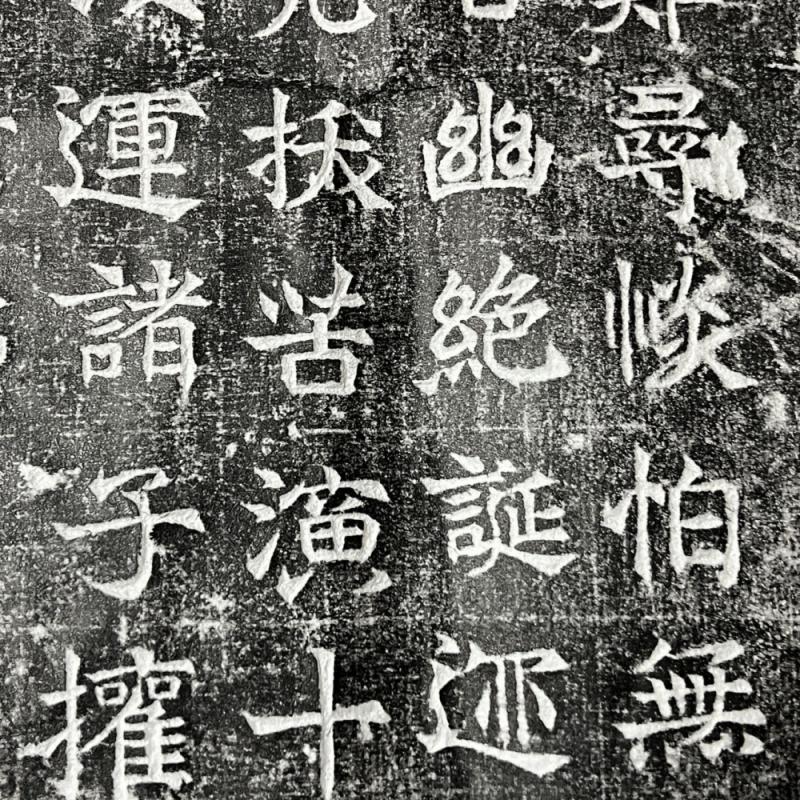 尋惔怕無
幽絶誕迹
拔苦演十
運諸子擢